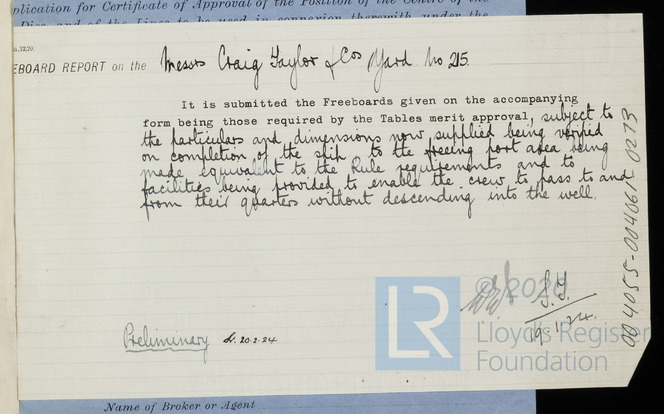 plication for Certificate of Approval of the Position of the Centre of the
Disc, and of the Lines to be used in connexion therewith, under the
EBOARD REPORT on the Messrs Craig Taylor & Cos Yard No 215.
It is submitted the Freeboards given on the accompanying
form being those required by the Tables merit approval, subject to
the particulars and dimensions now supplied being verified
on completion of the ship to the freeing port area being
made equivalent to the Rule requirements and to
facilities being provided to enable the crew to pass to and
from their quarters without descending into the well.
004055-004061-0273
© 2020
19.1.24.
LR
Lloyd's Register
Foundation
Preliminary 20.2.24
Name of Broker or Agent